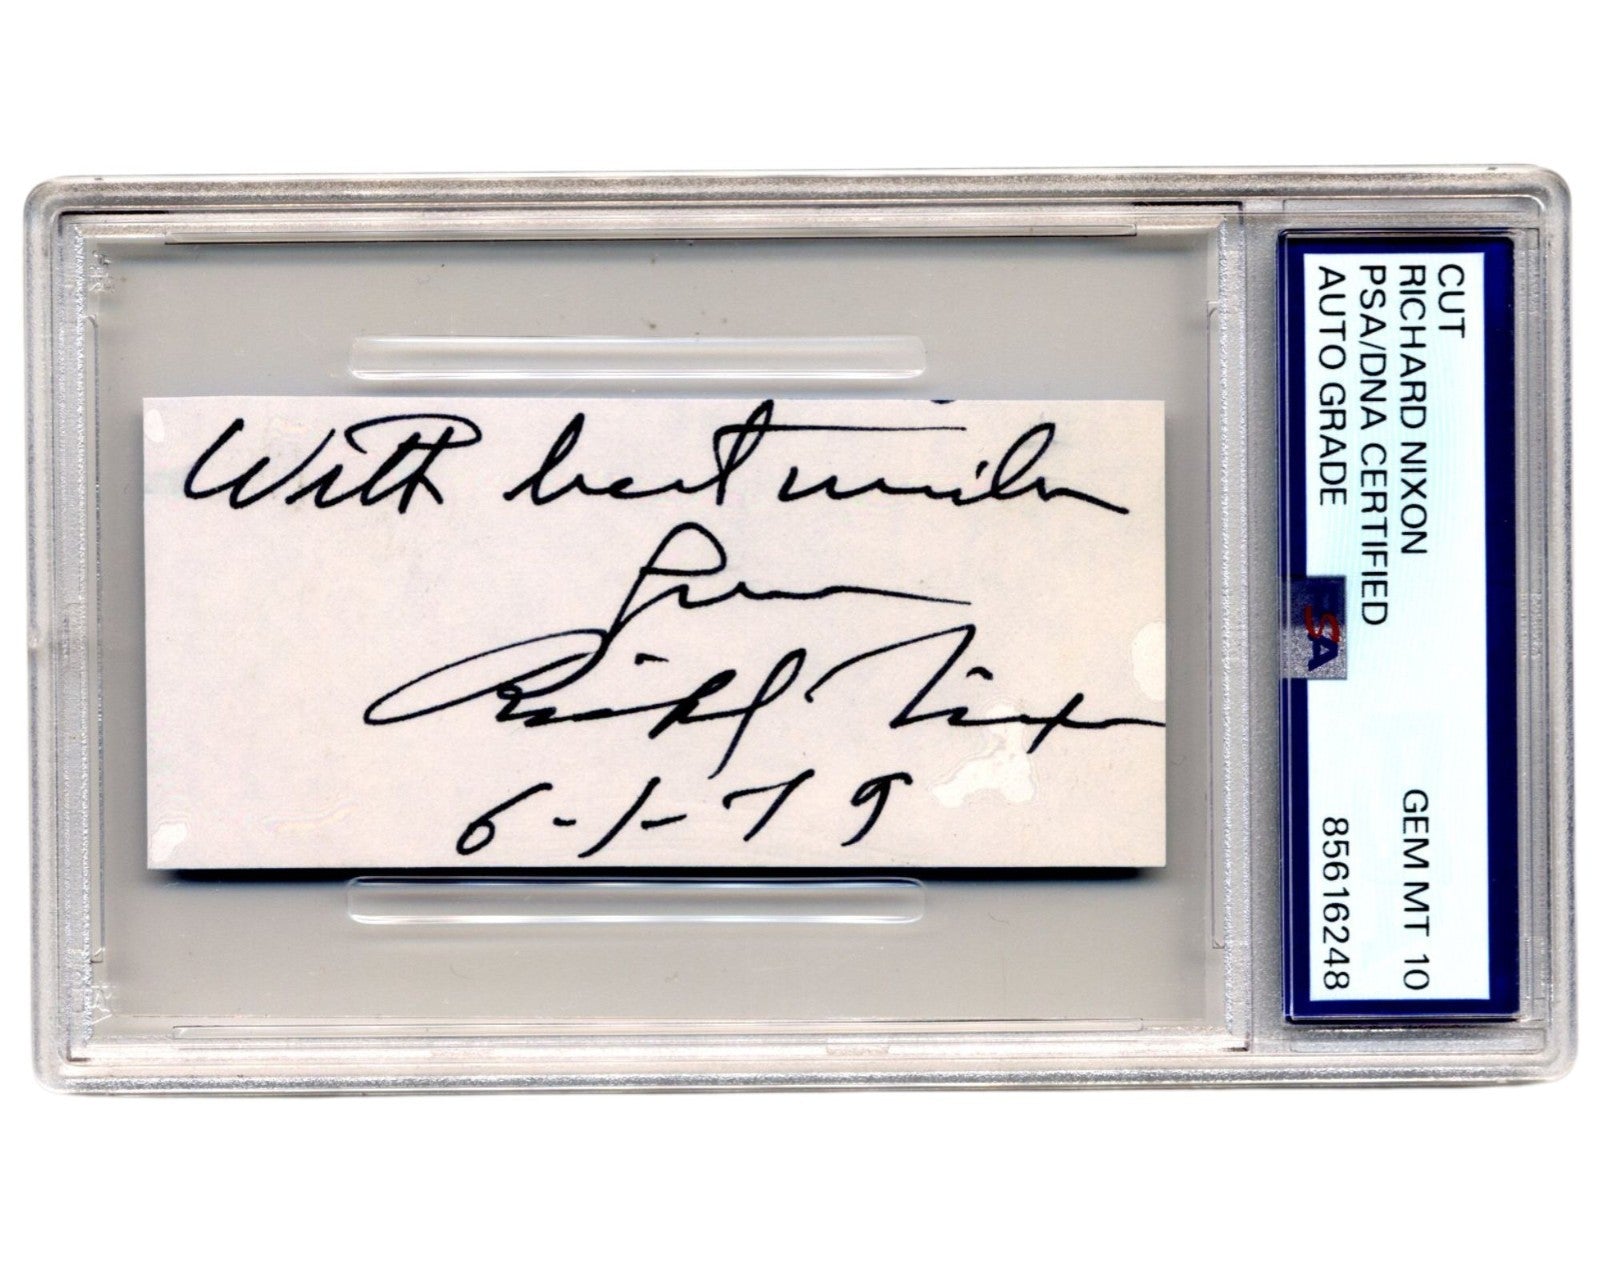 With best wishes
from
Richard Nixon
6-1-79
CUT
RICHARD NIXON GEM MT 10
PSA/DNA CERTIFIED
AUTO GRADE 85616248
PSA